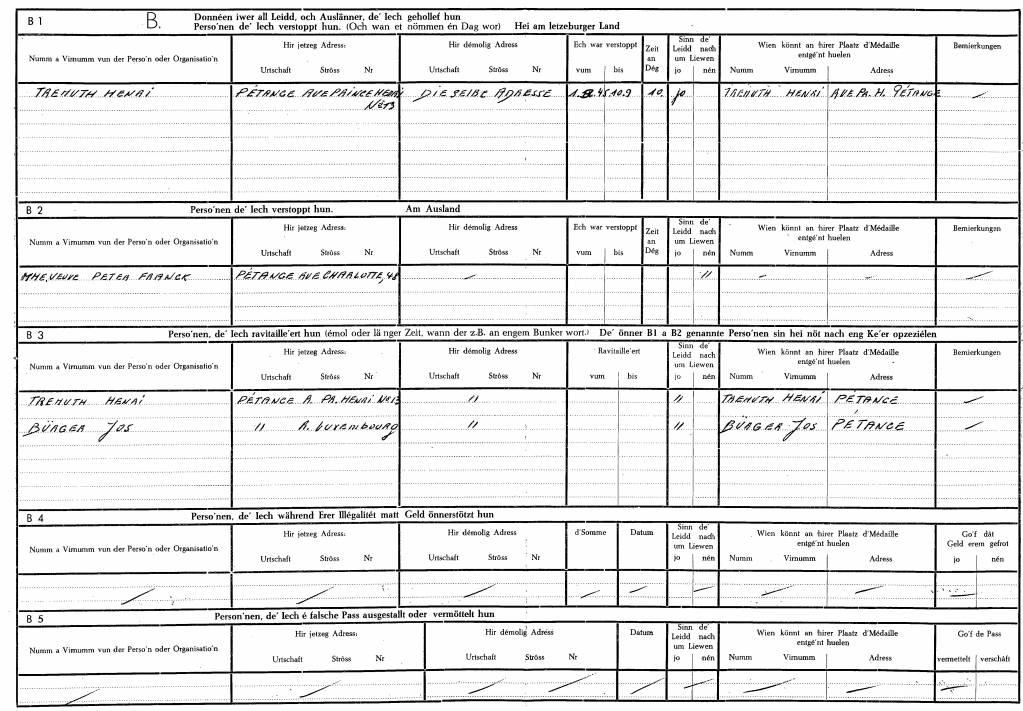 B 1 B. Donnéen iwer all Leidd, och Auslänner, de' Iech gehollef hun
Perso'nen de' Iech verstoppt hun. (Och wan et nömmen én Dag wor) Hei am letzeburger Land
Numm a Virnumm vun der Perso'n oder Organisatio'n
Hir jetzeg Adress:
Urtschaft Ströss Nr
Hir démolig Adress
Urtschaft Ströss Nr
Ech war verstoppt
vum bis
Zeit
an
Dég
Sinn de'
Leidd nach
um Liewen
jo nén
Wien könnt an hirer Plaatz d'Médaille
entgé'nt huelen
Numm Virnumm Adress
Bemierkungen
TREMUTH HENRI PÉTANGE AVE PRINCE HENRI
Nº 13
DIESELBE ADRESSE 10.9 10. jo TREMUTH HENRI AVE PR. H. PÉTANGE
B 2 Perso'nen de' Iech verstoppt hun. Am Ausland
Numm a Virnumm vun der Perso'n oder Organisatio'n
Hir jetzeg Adress:
Urtschaft Ströss Nr
Hir démolig Adress
Urtschaft Ströss Nr
Ech war verstoppt
vum bis
Zeit
an
Dég
Sinn de'
Leidd nach
um Liewen
jo nén
Wien könnt an hirer Plaatz d'Médaille
entgé'nt huelen
Numm Virnumm Adress
Bemierkungen
MME, VEUVE PETER FRANCK PÉTANGE AVE CHARLOTTE, 48 — " — — —
B 3 Perso'nen, de' Iech ravitaille'ert hun (émol oder länger Zeit, wann der z.B. an engem Bunker wort.) De' önner B1 a B2 genannte Perso'nen sin hei nöt nach eng Ke'er opzeziélen
Numm a Virnumm vun der Perso'n oder Organisatio'n
Hir jetzeg Adress:
Urtschaft Ströss Nr
Hir démolig Adress
Urtschaft Ströss Nr
Ravitaille'ert
vum bis
Sinn de'
Leidd nach
um Liewen
jo nén
Wien könnt an hirer Plaatz d'Médaille
entgé'nt huelen
Numm Virnumm Adress
Bemierkungen
TREMUTH HENRI PÉTANGE A. PR. HENRI Nº 13 " " TREMUTH HENRI PÉTANGE —
BÜRGER JOS " R. Luxembourg " " BÜRGER JOS PÉTANGE —
B 4 Perso'nen, de' Iech während Erer Illégalitét matt Geld önnerstötzt hun
Numm a Virnumm vun der Perso'n oder Organisatio'n
Hir jetzeg Adress:
Urtschaft Ströss Nr
Hir démolig Adress
Urtschaft Ströss Nr
d'Somme
Datum
Sinn de'
Leidd nach
um Liewen
jo nén
Wien könnt an hirer Plaatz d'Médaille
entgé'nt huelen
Numm Virnumm Adress
Go'f dât
Geld erem gefrot
jo nén
B 5 Perso'nen, de' Iech é falsche Pass ausgestallt oder vermöttelt hun
Numm a Virnumm vun der Perso'n oder Organisatio'n
Hir jetzeg Adress:
Urtschaft Ströss Nr
Hir démolig Adress
Urtschaft Ströss Nr
Datum
Sinn de'
Leidd nach
um Liewen
jo nén
Wien könnt an hirer Plaatz d'Médaille
entgé'nt huelen
Numm Virnumm Adress
Go'f de Pass
vermettelt verschâft